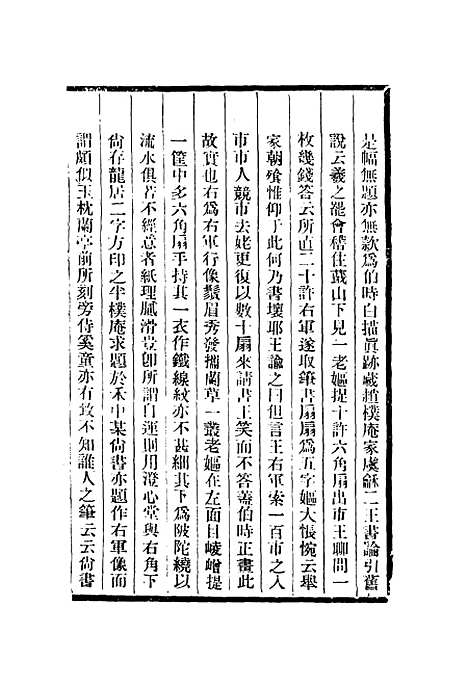 是幅無題亦無款爲伯時白描眞跡藏趙樸庵家虞龢二王書論引舊
說云羲之罷會稽住蕺山下見一老嫗捉十許六角扇出市王聊問一
枚幾錢答云所直二十許右軍遂取筆書扇扇爲五字嫗大悵惋云舉
家朝飧惟仰于此何乃書壞耶王諭之曰但言王右軍索一百市之入
市市人競市去姥更復以數十扇來請書王笑而不答蓋伯時正畫此
故實也右爲右軍行像鬚眉秀發攜蘭草一叢老嫗在左面目崚嶒提
一筐中多六角扇手持其一衣作鐵線紋亦不甚細其下爲陂陀繞以
流水俱若不經意者紙理膩滑豈卽所謂白運則用澄心堂與右角下
尙存龍居二字方印之半樸庵求題於禾中某尙書亦題作右軍像而
謂頗似玉枕蘭亭前所刻旁侍奚童亦有致不知誰人之筆云云尙書